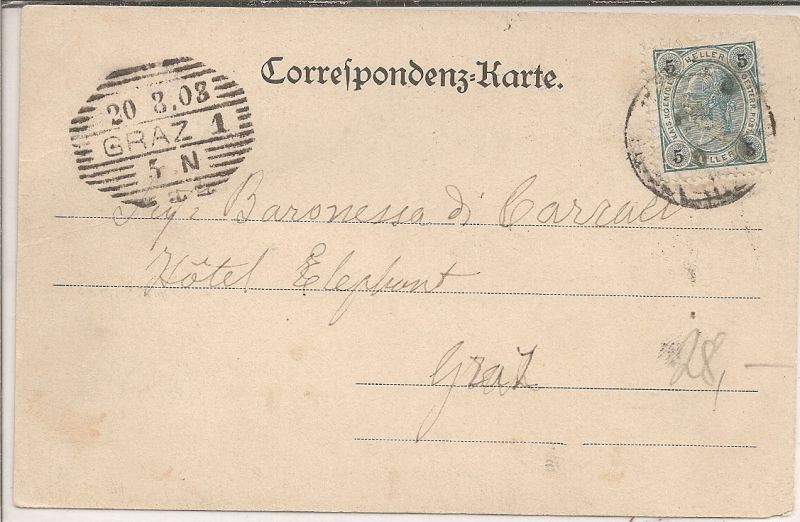 Correspondenz-Karte.
5 HELLER 5
KAIS. KOENIGL. OESTERR. POST
5 HELLER 5
20 3.03
GRAZ 1
5. N
Sig. Baronessa di Carraci
Hôtel Elephant
Graz
28,—